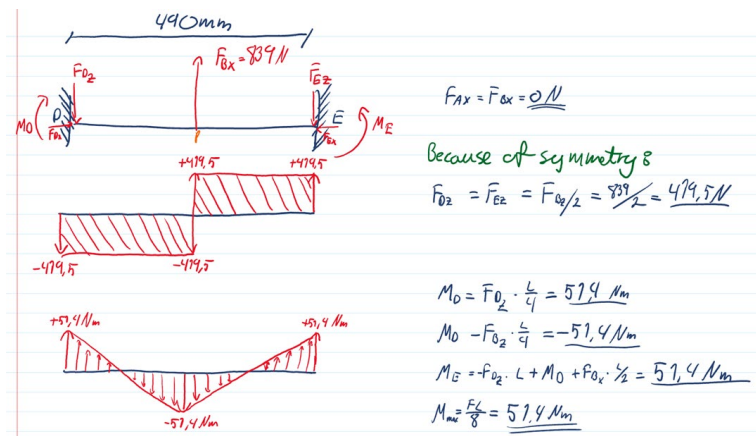 490mm
F_Dz
F_Bx = 839 N
F_Ez
M_D
D
F_Dx
E
F_Ex
M_E
+419,5
+419,5
-419,5
-419,5
+51,4 Nm
+51,4 Nm
-51,4 Nm
F_Ax = F_Bx = 0 N
Because of symmetry:
F_Dz = F_Ez = F_Bz/2 = 839/2 = 419,5 N
M_D = F_Dz · L/4 = 51,4 Nm
M_D - F_Bz · L/4 = -51,4 Nm
M_E = -F_Dz · L + M_D + F_Bx · L/2 = 51,4 Nm
M_max = FL/8 = 51,4 Nm